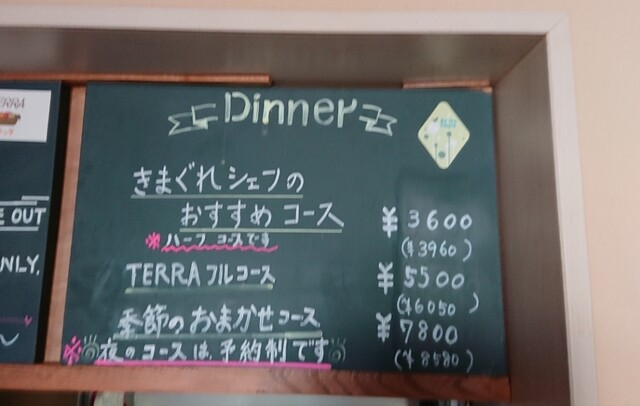 Dinner
きまぐれシェフの
おすすめコース ¥3600
※ハーフコースです (¥3960)
TERRAフルコース ¥5500
(¥6050)
季節のおまかせコース ¥7800
※夜のコースは、予約制です (¥8580)
E OUT
NLY.